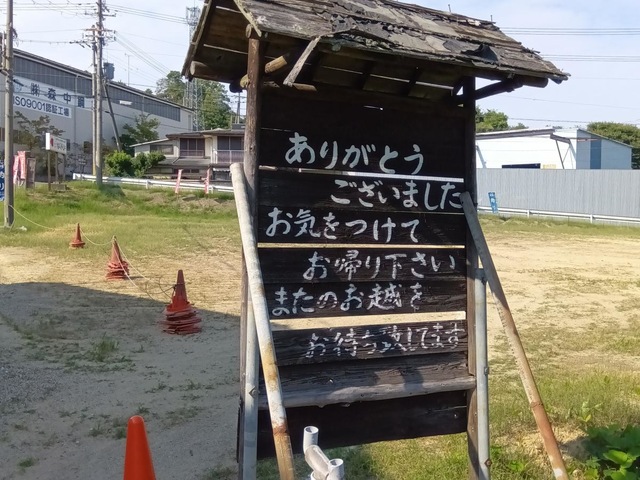 ありがとう
ございました
お気をつけて
お帰り下さい
またのお越を
お待ち致してます
ISO9001認証工場